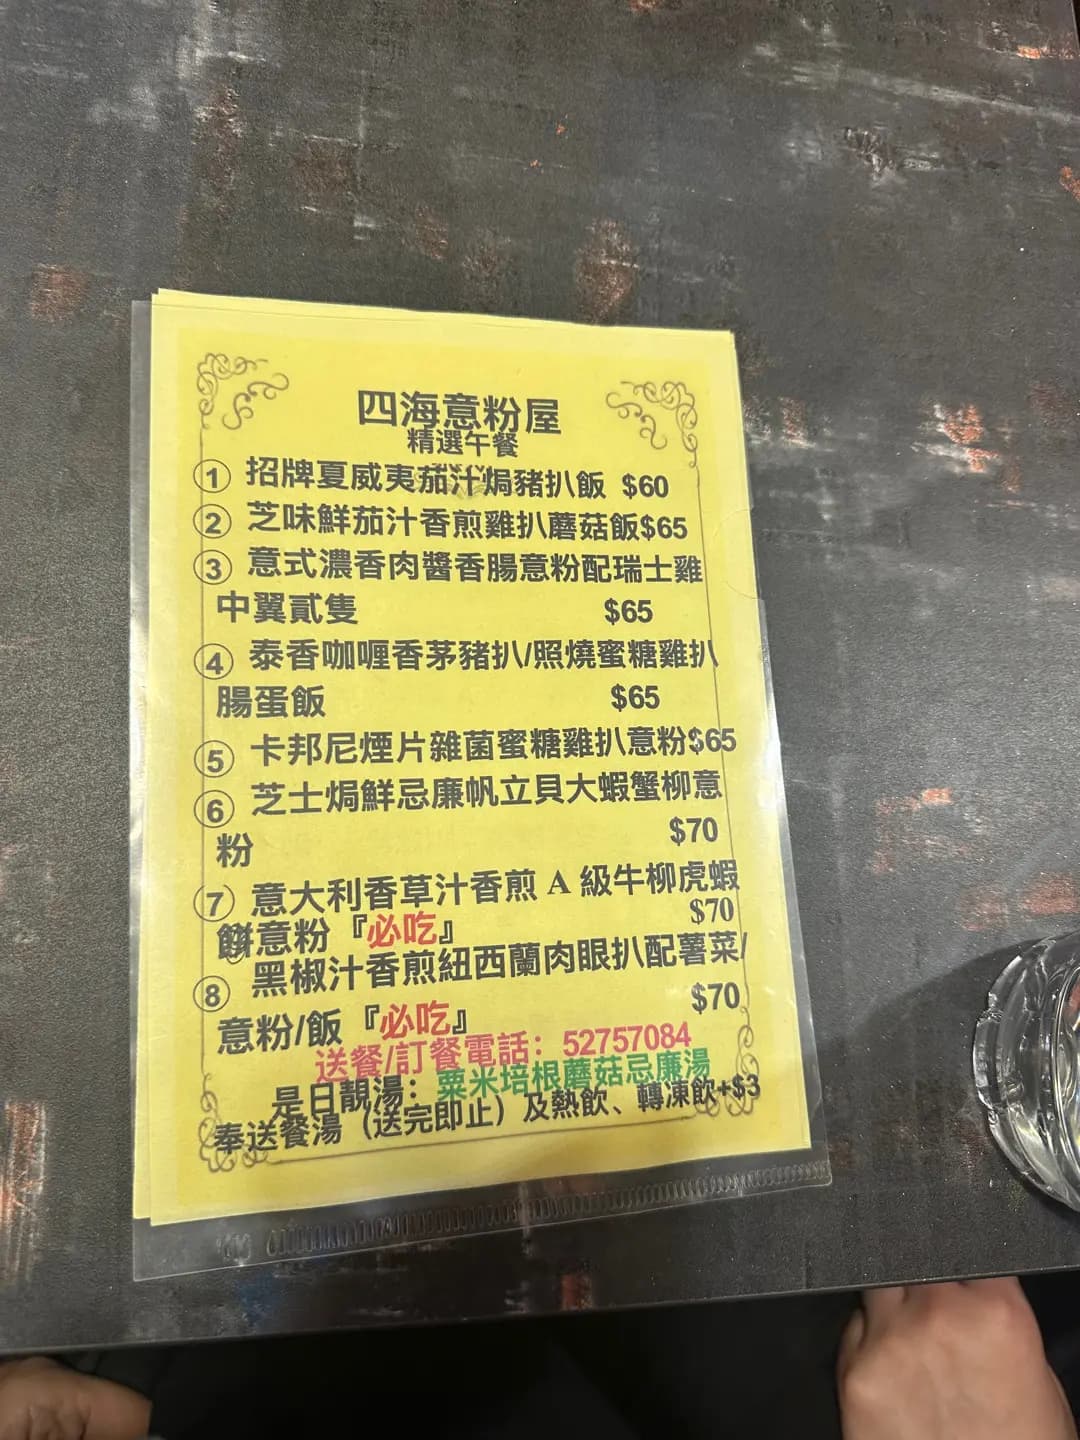 四海意粉屋
精選午餐
① 招牌夏威夷茄汁焗豬扒飯 $60
② 芝味鮮茄汁香煎雞扒蘑菇飯$65
③ 意式濃香肉醬香腸意粉配瑞士雞
中翼貳隻 $65
④ 泰香咖喱香茅豬扒/照燒蜜糖雞扒
腸蛋飯 $65
⑤ 卡邦尼煙片雜菌蜜糖雞扒意粉$65
⑥ 芝士焗鮮忌廉帆立貝大蝦蟹柳意
粉 $70
⑦ 意大利香草汁香煎 A 級牛柳虎蝦
餅意粉『必吃』 $70
⑧ 黑椒汁香煎紐西蘭肉眼扒配薯菜/
意粉/飯『必吃』 $70
送餐/訂餐電話：52757084
是日靚湯：粟米培根蘑菇忌廉湯
奉送餐湯（送完即止）及熱飲、轉凍飲+$3